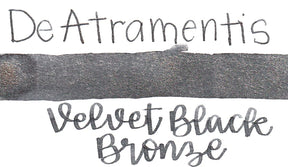 De Atramentis
Velvet Black
Bronze